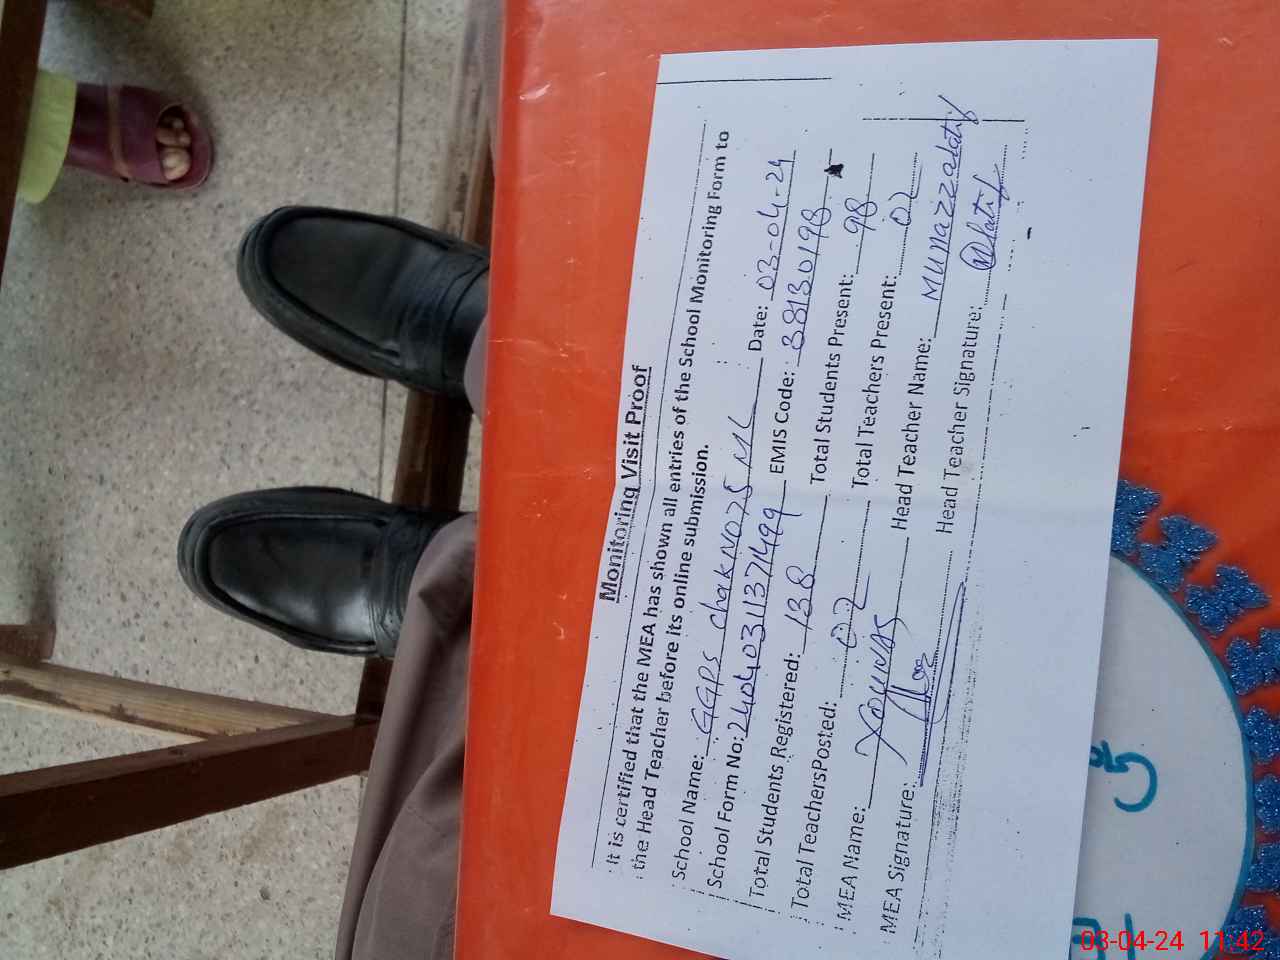 Monitoring Visit Proof
It is certified that the MEA has shown all entries of the School Monitoring Form to
the Head Teacher before its online submission.
School Name: GGPS chak NO75 ML Date: 03-04-24
School Form No: 2404031137499 EMIS Code: 38130198
Total Students Registered: 138 Total Students Present: 98
Total TeachersPosted: 02 Total Teachers Present: 02
MEA Name: Head Teacher Name: Munazzalatif
MEA Signature: Head Teacher Signature: Mlatif
03-04-24 11:42